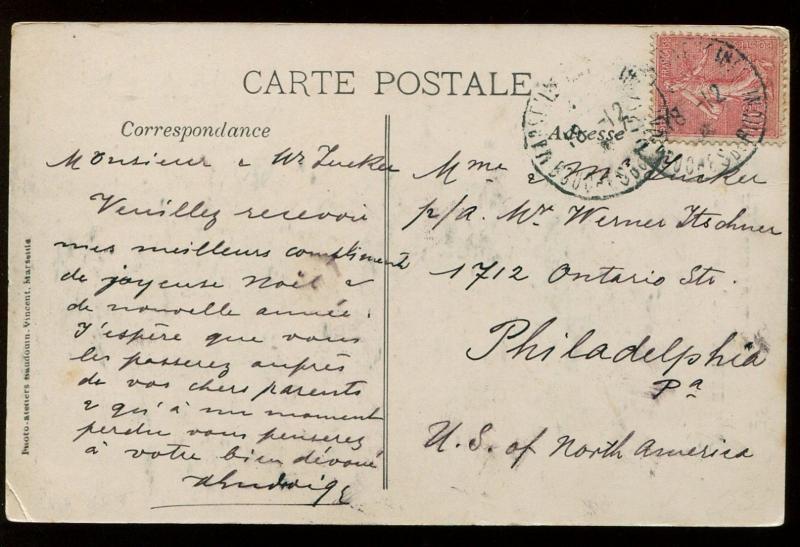 CARTE POSTALE
Correspondance
Monsieur & Mr Zucker
Veuillez recevoir
mes meilleurs compliments
de joyeuse Noël &
de nouvelle année.
J'espère que vous
les passerez auprès
de vos chers parents
& qu'à un moment
perdu vous penserez
à votre bien dévoué
Adresse
Mme & Mr Zucker
p/a. Mr Werner Itschner
1712 Ontario Str.
Philadelphia
Pa
U.S. of North America
Photo-ateliers Baudouin-Vincent, Marseille